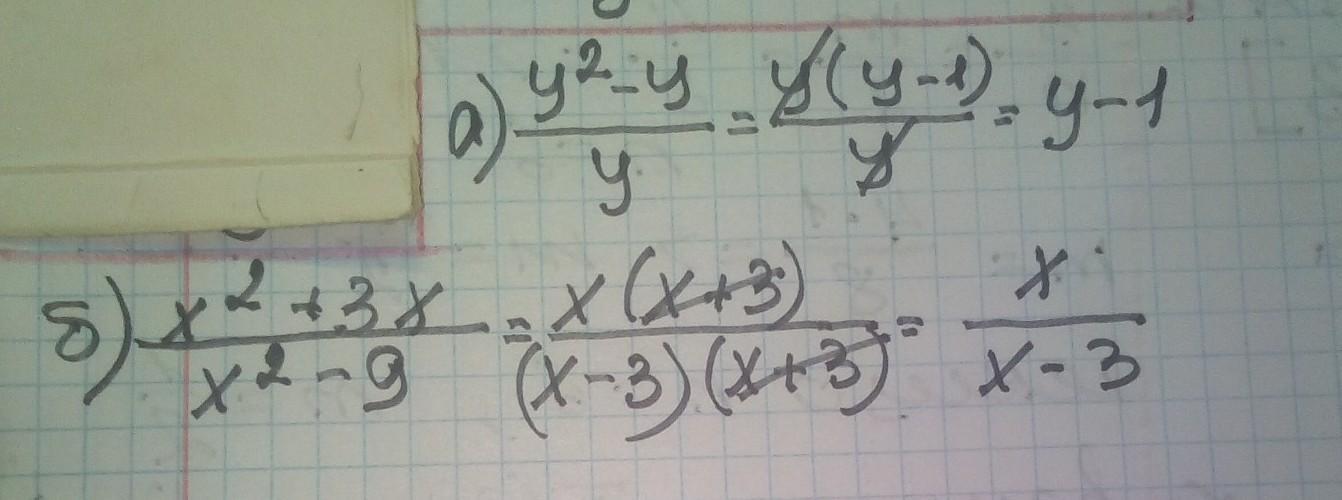 а) y²-y/y = y(y-1)/y = y-1
б) x²+3x/x²-9 = x(x+3)/(x-3)(x+3) = x/x-3